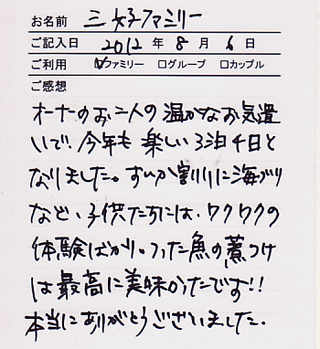 お名前 三好ファミリー
ご記入日 2012年 8月 6日
ご利用 ☑ファミリー □グループ □カップル
ご感想
オーナーのお二人の温かなお気遣
いで、今年も楽しい3泊4日と
なりました。すいか割りに海づり
など、子供たちには、ワクワクの
体験ばかり。つった魚の煮つけ
は最高に美味かったです!!
本当にありがとうございました。